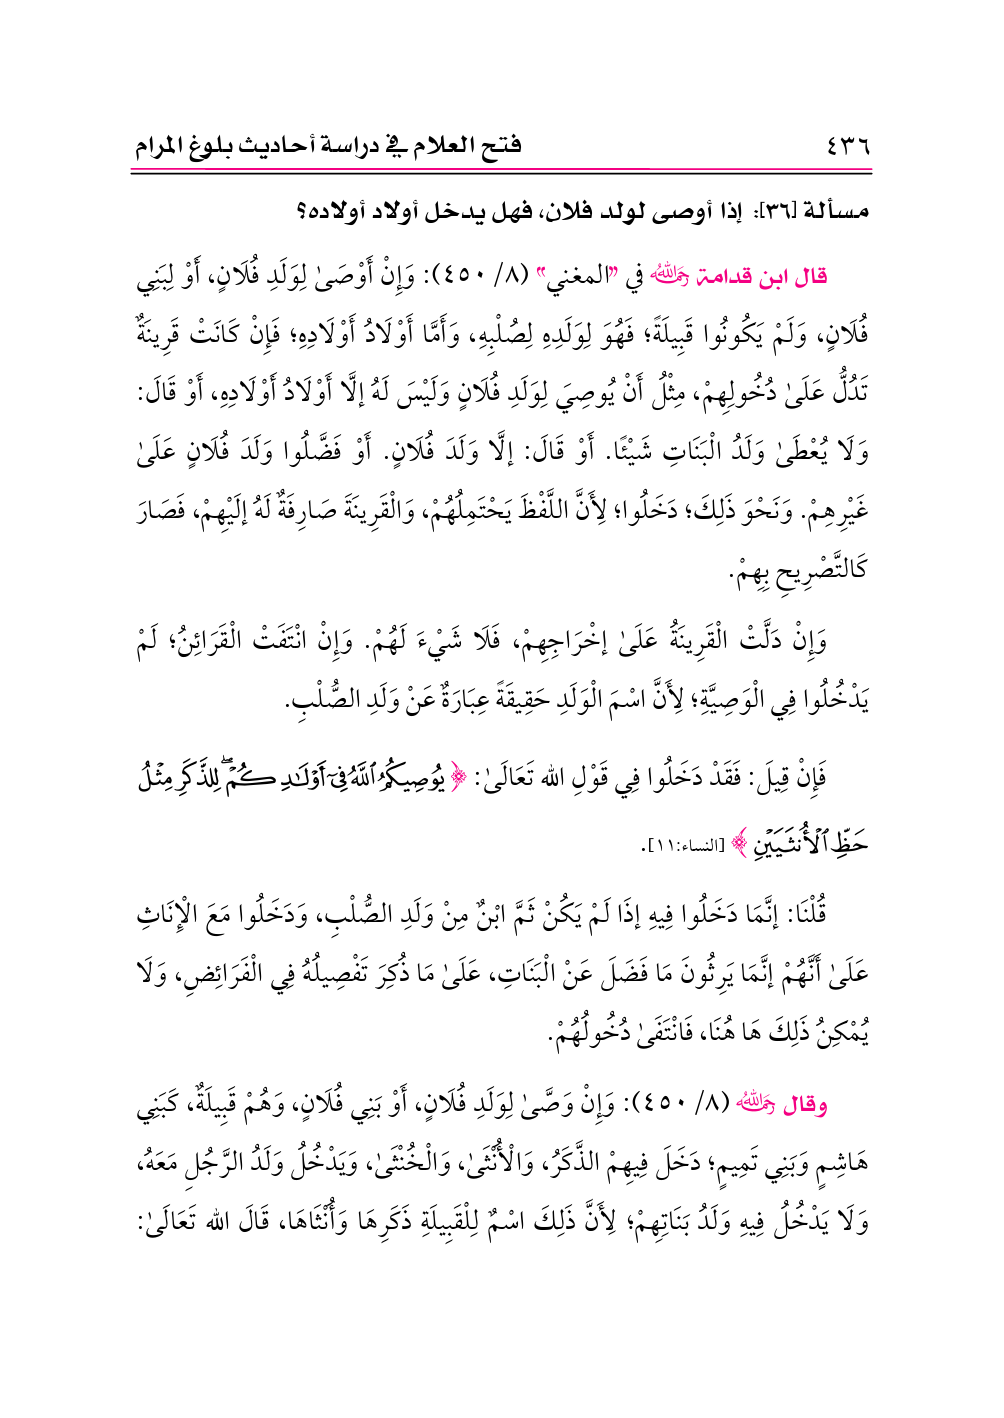 ٤٣٦ فتح العلام في دراسة أحاديث بلوغ المرام
مسألة [٣٦]: إذا أوصى لولد فلان، فهل يدخل أولاد أولاده؟
قال ابن قدامة رحمه الله في "المغني" (٨/ ٤٥٠): وَإِنْ أَوْصَىٰ لِوَلَدِ فُلَانٍ، أَوْ لِبَنِي
فُلَانٍ، وَلَمْ يَكُونُوا قَبِيلَةً؛ فَهُوَ لِوَلَدِهِ لِصُلْبِهِ، وَأَمَّا أَوْلَادُ أَوْلَادِهِ؛ فَإِنْ كَانَتْ قَرِينَةٌ
تَدُلُّ عَلَىٰ دُخُولِهِمْ، مِثْلُ أَنْ يُوصِيَ لِوَلَدِ فُلَانٍ وَلَيْسَ لَهُ إلَّا أَوْلَادُ أَوْلَادِهِ، أَوْ قَالَ:
وَلَا يُعْطَىٰ وَلَدُ الْبَنَاتِ شَيْئًا. أَوْ قَالَ: إلَّا وَلَدَ فُلَانٍ. أَوْ فَضَّلُوا وَلَدَ فُلَانٍ عَلَىٰ
غَيْرِهِمْ. وَنَحْوَ ذَلِكَ؛ دَخَلُوا؛ لِأَنَّ اللَّفْظَ يَحْتَمِلُهُمْ، وَالْقَرِينَةَ صَارِفَةٌ لَهُ إلَيْهِمْ، فَصَارَ
كَالتَّصْرِيحِ بِهِمْ.
وَإِنْ دَلَّتْ الْقَرِينَةُ عَلَىٰ إخْرَاجِهِمْ، فَلَا شَيْءَ لَهُمْ. وَإِنْ انْتَفَتْ الْقَرَائِنُ؛ لَمْ
يَدْخُلُوا فِي الْوَصِيَّةِ؛ لِأَنَّ اسْمَ الْوَلَدِ حَقِيقَةً عِبَارَةٌ عَنْ وَلَدِ الصُّلْبِ.
فَإِنْ قِيلَ: فَقَدْ دَخَلُوا فِي قَوْلِ الله تَعَالَىٰ: ﴿ يُوصِيكُمُ ٱللَّهُ فِىٓ أَوْلَـٰدِكُمْ ۖ لِلذَّكَرِ مِثْلُ
حَظِّ ٱلْأُنثَيَيْنِ ﴾ [النساء:١١].
قُلْنَا: إنَّمَا دَخَلُوا فِيهِ إذَا لَمْ يَكُنْ ثَمَّ ابْنٌ مِنْ وَلَدِ الصُّلْبِ، وَدَخَلُوا مَعَ الْإِنَاثِ
عَلَىٰ أَنَّهُمْ إنَّمَا يَرِثُونَ مَا فَضَلَ عَنْ الْبَنَاتِ، عَلَىٰ مَا ذُكِرَ تَفْصِيلُهُ فِي الْفَرَائِضِ، وَلَا
يُمْكِنُ ذَلِكَ هَا هُنَا، فَانْتَفَىٰ دُخُولُهُمْ.
وقال رحمه الله (٨/ ٤٥٠): وَإِنْ وَصَّىٰ لِوَلَدِ فُلَانٍ، أَوْ بَنِي فُلَانٍ، وَهُمْ قَبِيلَةٌ، كَبَنِي
هَاشِمٍ وَبَنِي تَمِيمٍ؛ دَخَلَ فِيهِمْ الذَّكَرُ، وَالْأُنْثَىٰ، وَالْخُنْثَىٰ، وَيَدْخُلُ وَلَدُ الرَّجُلِ مَعَهُ،
وَلَا يَدْخُلُ فِيهِ وَلَدُ بَنَاتِهِمْ؛ لِأَنَّ ذَلِكَ اسْمٌ لِلْقَبِيلَةِ ذَكَرِهَا وَأُنْثَاهَا، قَالَ الله تَعَالَىٰ: